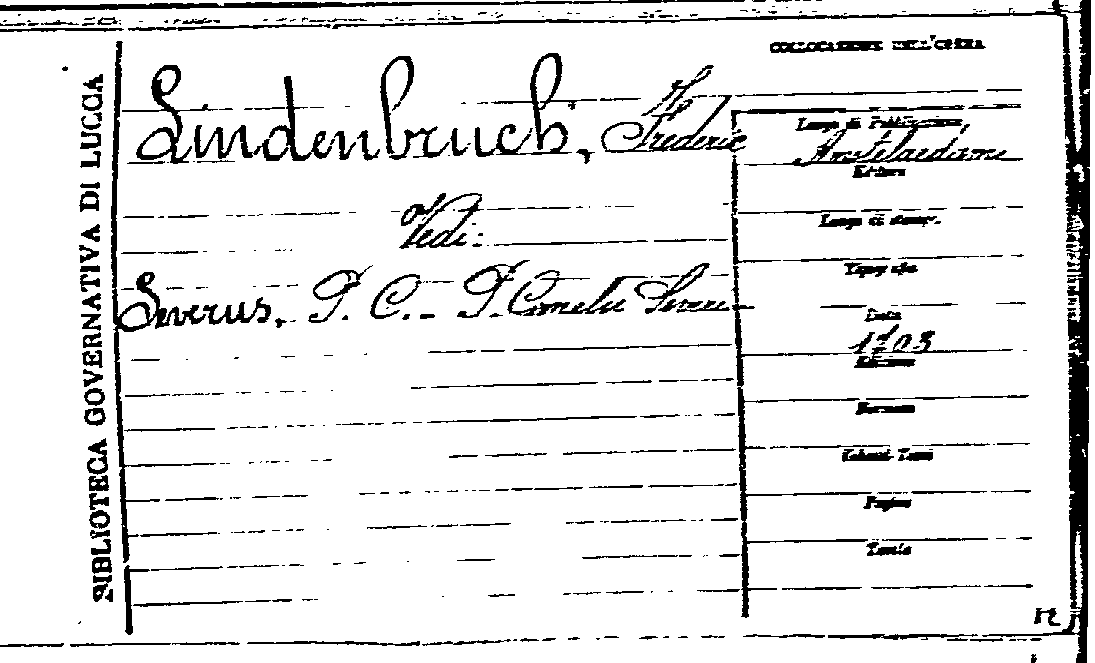 BIBLIOTECA GOVERNATIVA DI LUCCA
COLLOCAZIONE DELL'OPERA
Lindenbruch, Frederic
Vedi:
Severus, P. C. - P. Cornelii Severi
Luogo di Pubblicazione
Amstelaedami
Editore
Luogo di stampa
Tipografia
Data
1703
Edizione
Formato
Volumi-Tomi
Pagine
Tavole